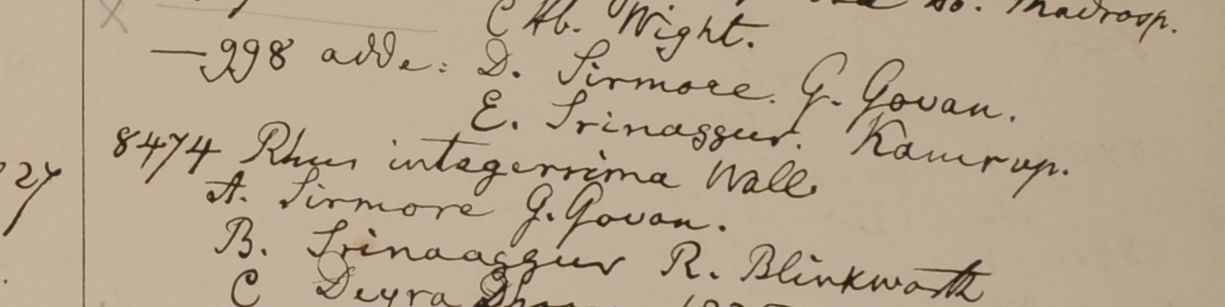 Madrasp.
C Hb. Wight.
—998 adde: D. Sirmore. G. Govan.
E. Srinaggur. Kamrup.
8474 Rhus integerrima Wall.
A. Sirmore G. Govan.
27
B. Srinaaggur R. Blinkworth
C Deyra